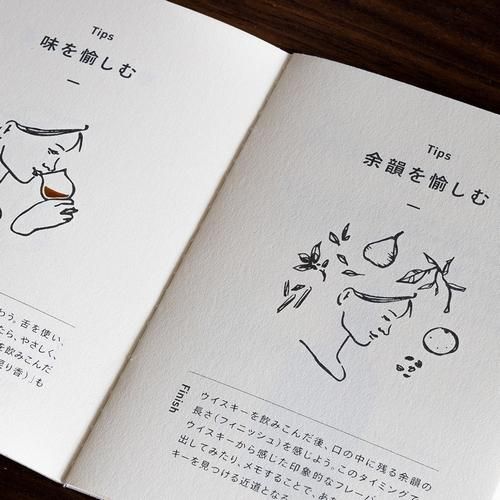 Tips
味を愉しむ
わう。舌を使い、
たら、やさしく、
を飲みこんだ
戻り香)」も
Tips
余韻を愉しむ
Finish
ウイスキーを飲みこんだ後、口の中に残る余韻の
長さ(フィニッシュ)を感じよう。このタイミングで
ウイスキーから感じた印象的なフレー
出してみたり、メモすることで、あな
キーを見つける近道とな